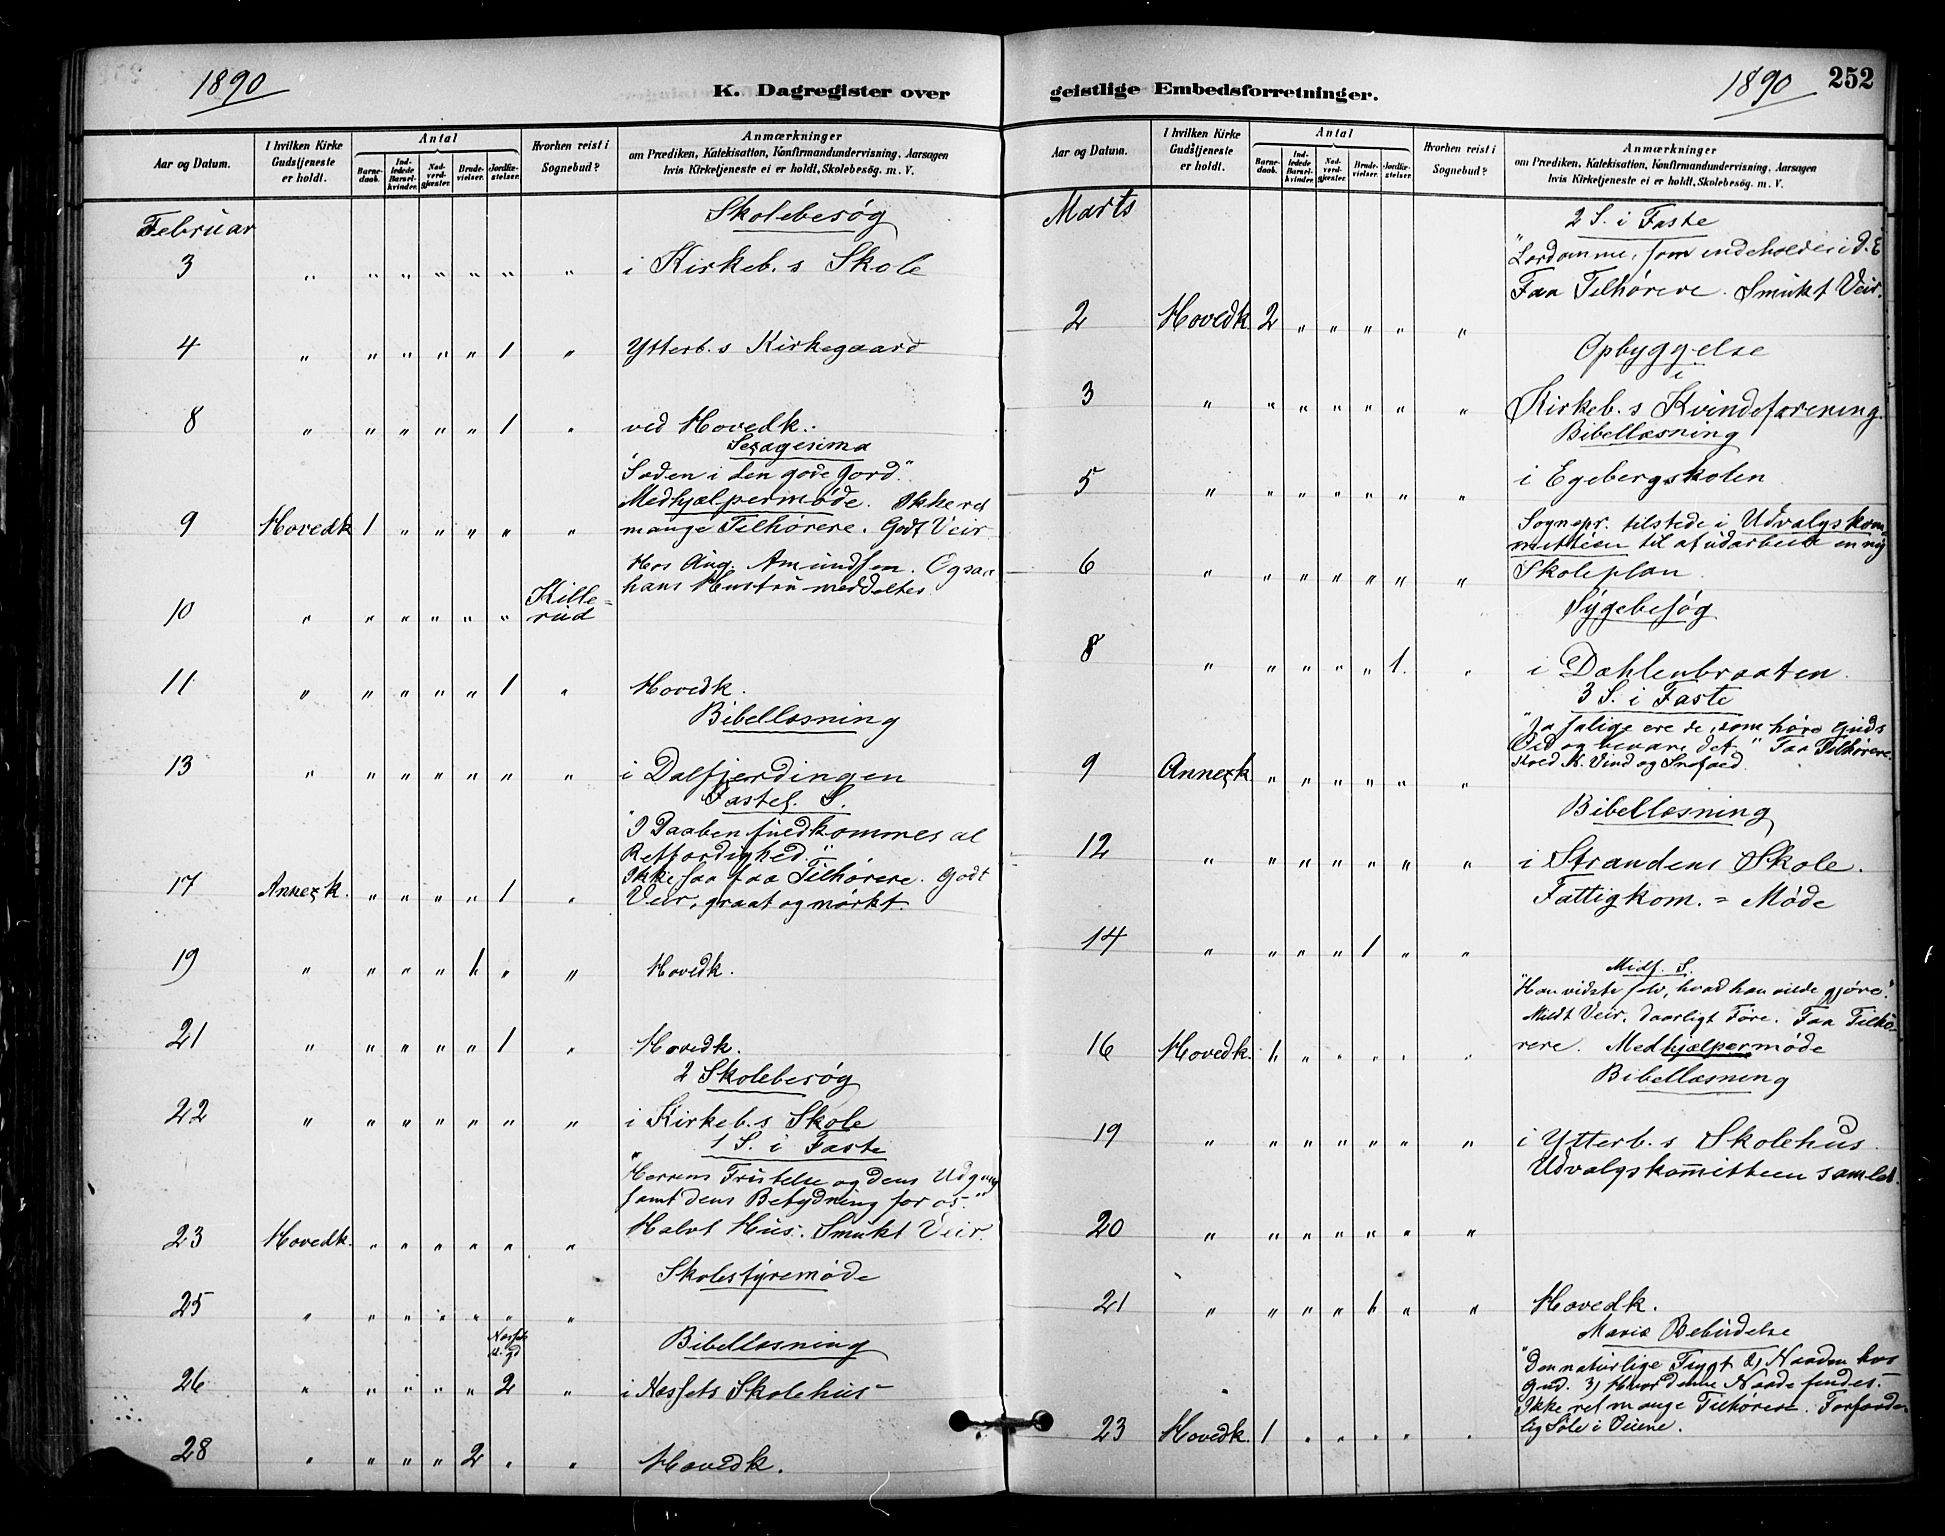 1890
K. Dagregister over
Aar og Datum.
I hvilken Kirke Gudstjeneste er holdt.
Antal
Barnedaab.
Indledede Barselkvinder.
Nadverdgjæster.
Brudevielser.
Jordfæstelser.
Hvorhen reist i Sognebud?
Anmærkninger
om Prædiken, Katekisation, Konfirmandundervisning, Aarsagen
hvis Kirketjeneste ei er holdt, Skolebesøg. m. V.
Februar
Skolebesøg
3 " " " " " " " i Kirkeb.s Skole
4 " " " " " 1 " Ytterb.s Kirkegaard
8 " " " " " 1 " ved Hovedk.
Sexagesima
"Sæden i den gode Jord."
Medhjælpermøde. Ikke ret
9 Hovedk 1 " " " " " mange Tilhørere. Godt Veir
Hos Aug. Amundsen. Ogsaa
hans Hustru meddeltes
10 " " " " " " Killerud
11 " " " " " 1 " Hovedk.
Bibellæsning
13 " " " " " " " i Dalfjerdingen
Fastel. S.
"I Daaben fuldkommes al
Retfærdighed."
Ikke saa faa Tilhørere. Godt
17 Annexk. " " " " 1 " Veir, graat og mørkt.
19 " " " " 1 " " Hovedk.
21 " " " " " 1 " Hovedk.
2 Skolebesøg
22 " " " " " " " i Kirkeb.s Skole
1 S. i Faste
"Herrens Fristelse og dens Udgang
samt dens Betydning for os."
23 Hovedk. " " " " " " Halvt Hus. Smukt Veir.
Skolestyremøde
25 " " " " " " "
Bibellæsning
26 " " " " " 2 " i Næssets Skolehus
28 " " " " 2 " " Hovedk.
geistlige Embedsforretninger.
1890
252
Aar og Datum.
I hvilken Kirke Gudstjeneste er holdt.
Antal
Barnedaab.
Indledede Barselkvinder.
Nadverdgjæster.
Brudevielser.
Jordfæstelser.
Hvorhen reist i Sognebud?
Anmærkninger
om Prædiken, Katekisation, Konfirmandundervisning, Aarsagen
hvis Kirketjeneste ei er holdt, Skolebesøg. m. V.
Marts
2 S. i Faste
"Lærdomme, som indeholdes i d. E
Faa Tilhørere. Smukt Veir.
2 Hovedk. 2 " " " " "
Opbyggelse
i
3 " " " " " " " Kirkeb.s Kvindeforening
Bibellæsning
5 " " " " " " " i Egebergskolen
Sognepr. tilstede i Udvalgskommitteen
til at udarbeide en ny
6 " " " " " " " Skoleplan
Sygebesøg
8 " " " " " 1. " i Dæhlenbraaten
3 S. i Faste
"Ja salige ere de, som høre Guds
Ord og bevare det." Faa Tilhørere.
9 Annexk " " " " " " Hved K. Vind og Snefaed.
Bibellæsning
12 " " " " " " " i Strandens Skole.
Fattigkom. = Møde
14 " " " " 1 " "
Midf. S.
"Han vidste selv, hvad han vilde gjøre."
Mildt Veir, daarligt Føre. Faa Tilhørere.
16 Hovedk. 1 " " " " " Medhjælpermøde
Bibellæsning
19 " " " " " " " i Ytterb.s Skolehus
Udvalgskomitteen samlet.
20 " " " " " " "
21 " " " " 1 " " Hovedk.
Mariæ Bebudelse
"Den naturlige Frygt 2, Naaden hos
Gud. 3, Hvor denne Naade findes."
Ikke ret mange Tilhørere. Forfærdelig
23 Hovedk. 1 " " " " " Føle i Veiene.